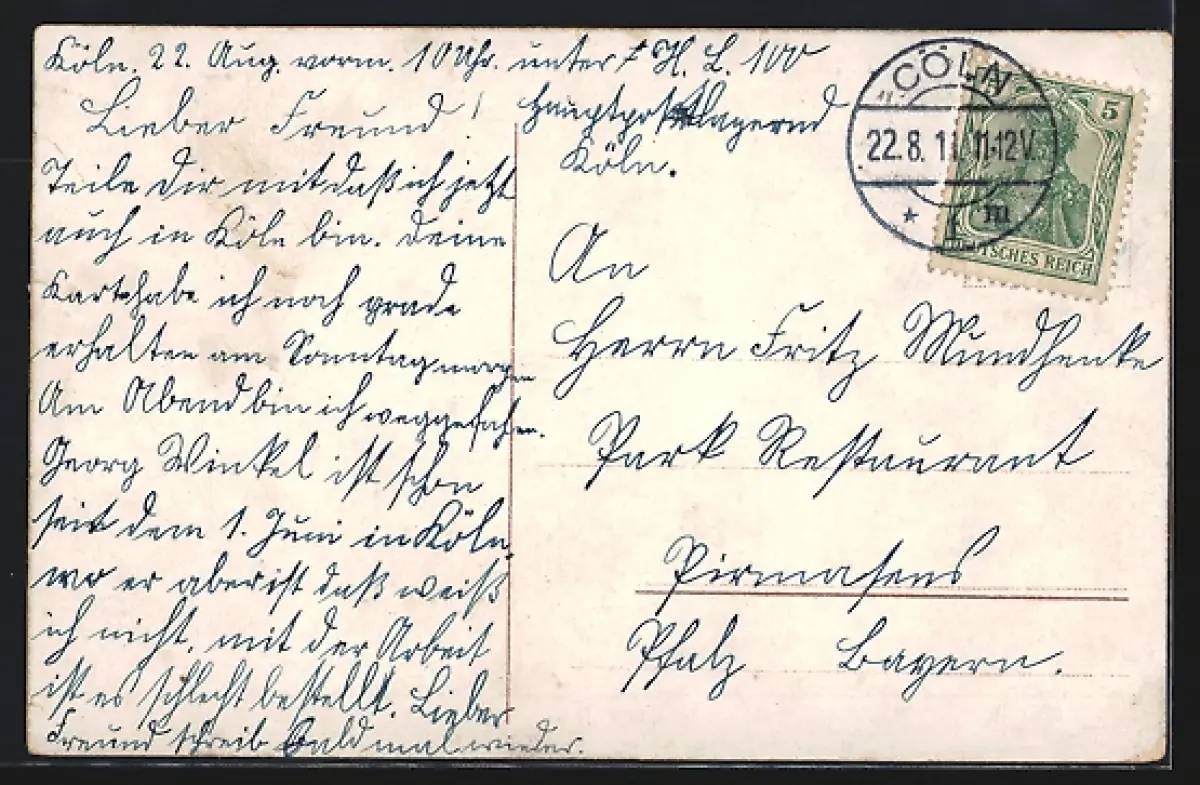 Köln. 22. Aug. vorm. 10 Uhr. unter H. L. 100
hauptpostlagernd
Köln.
Lieber Freund!
Teile Dir mit daß ich jetzt
auch in Köln bin. Deine
Karte habe ich noch grade
erhalten am Sonntag morgen
Am Abend bin ich weggefahren.
Georg Winkel ist schon
seit dem 1. Juni in Köln.
wo er aber ist daß weiß
ich nicht, mit der Arbeit
ist es schlecht bestellt. Lieber
Freund schreib bald mal wieder.
CÖLN
22.8.11. 11-12V.
* 1 m
5
DEUTSCHES REICH
An
Herrn Fritz Mundhenke
Park Restaurant
Pirmasens
Pfalz Bayern.